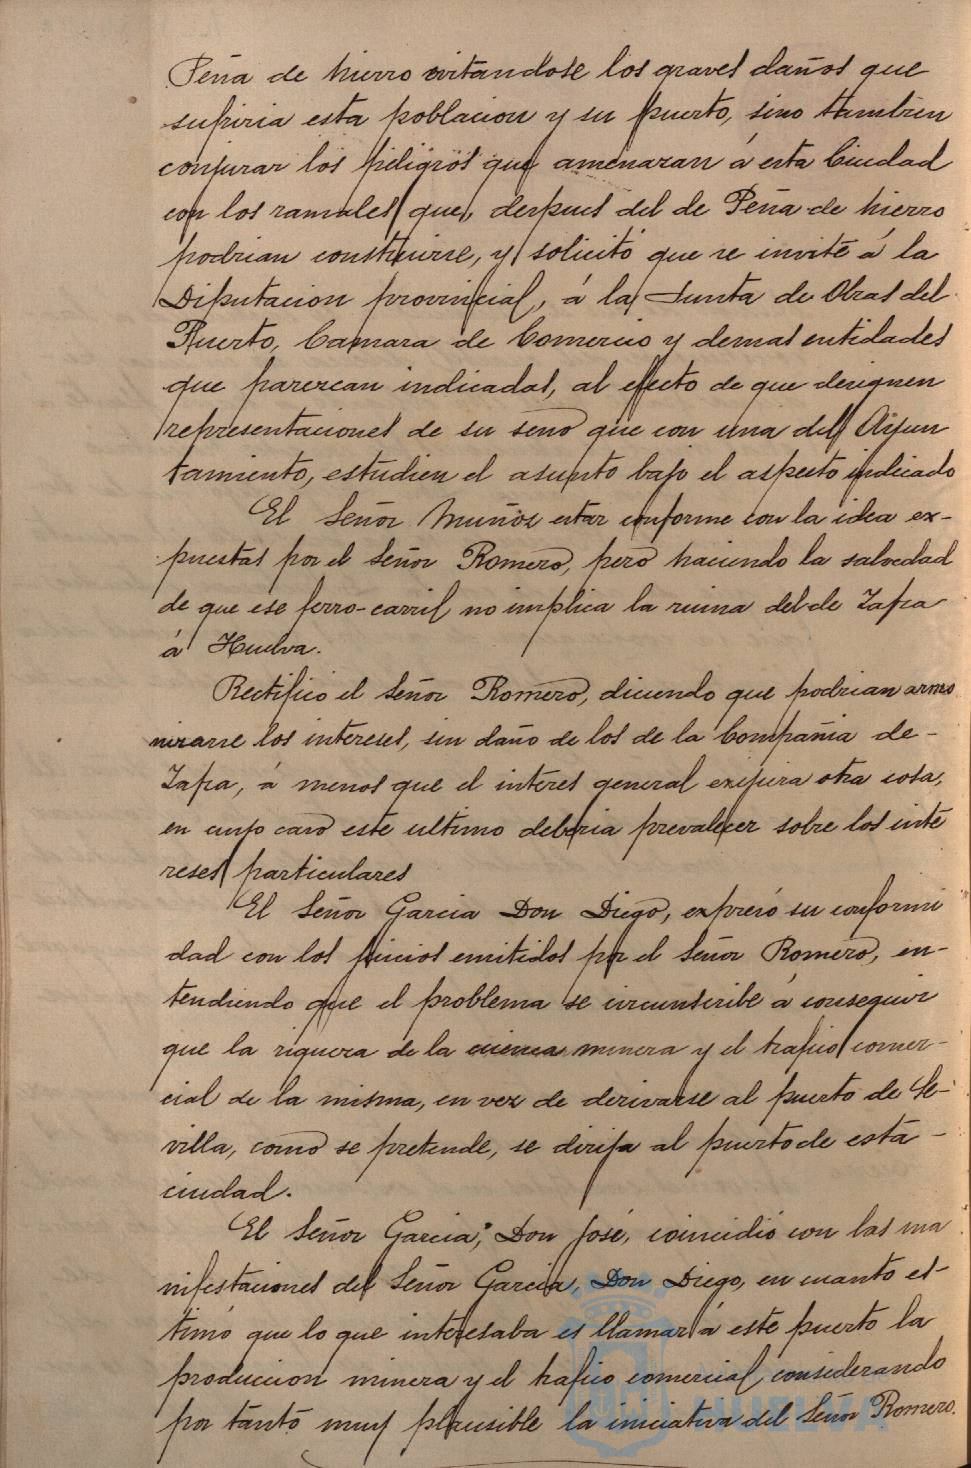 Peña de hierro evitandose los graves daños que
sufriria esta poblacion y su puerto, sino tambien
conjurar los peligros que amenazan á esta Ciudad
con los ramales que, despues del de Peña de hierro
podrian construirse, y solicitó que se invite á la
Diputacion provincial, á la Junta de Obras del
Puerto, Camara de Comercio y demas entidades
que parezcan indicadas, al efecto de que designen
representaciones de su seno que con una del Ayun
tamiento, estudien el asunto bajo el aspecto indicado
El Señor Muñoz estar conforme con la idea ex-
puestas por el Señor Romero, pero haciendo la salvedad
de que ese ferro-carril no implica la ruina del de Zafra
á Huelva.
Rectificó el Señor Romero, diciendo que podrian armo
nizarse los intereses, sin daño de los de la Compañia de-
Zafra, á menos que el interes general exijiera otra cosa,
en cuyo caso este ultimo deberia prevalecer sobre los inte
reses particulares
El Señor Garcia Don Diego, expresó su conformi
dad con los juicios emitidos por el Señor Romero, en-
tendiendo que el problema se circunscribe á conseguir
que la riqueza de la cuenca minera y el trafico comer-
cial de la misma, en vez de derivarse al puerto de Se-
villa, como se pretende, se dirija al puerto de esta -
ciudad.
El Señor Garcia, Don José, coincidió con las ma
nifestaciones del Señor Garcia, Don Diego, en cuanto es-
timó que lo que interesaba es llamar á este puerto la
produccion minera y el trafico comercial considerando
por tanto muy plausible la iniciativa del Señor Romero.
HUELVA